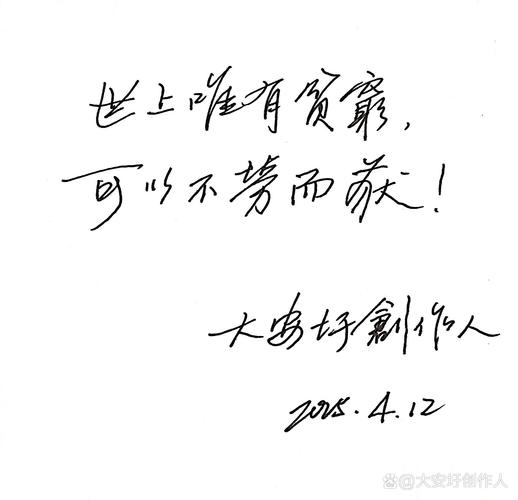 世上唯有贫窮，
可以不劳而获！
大安圩創作人
2025.4.12
@大安圩创作人